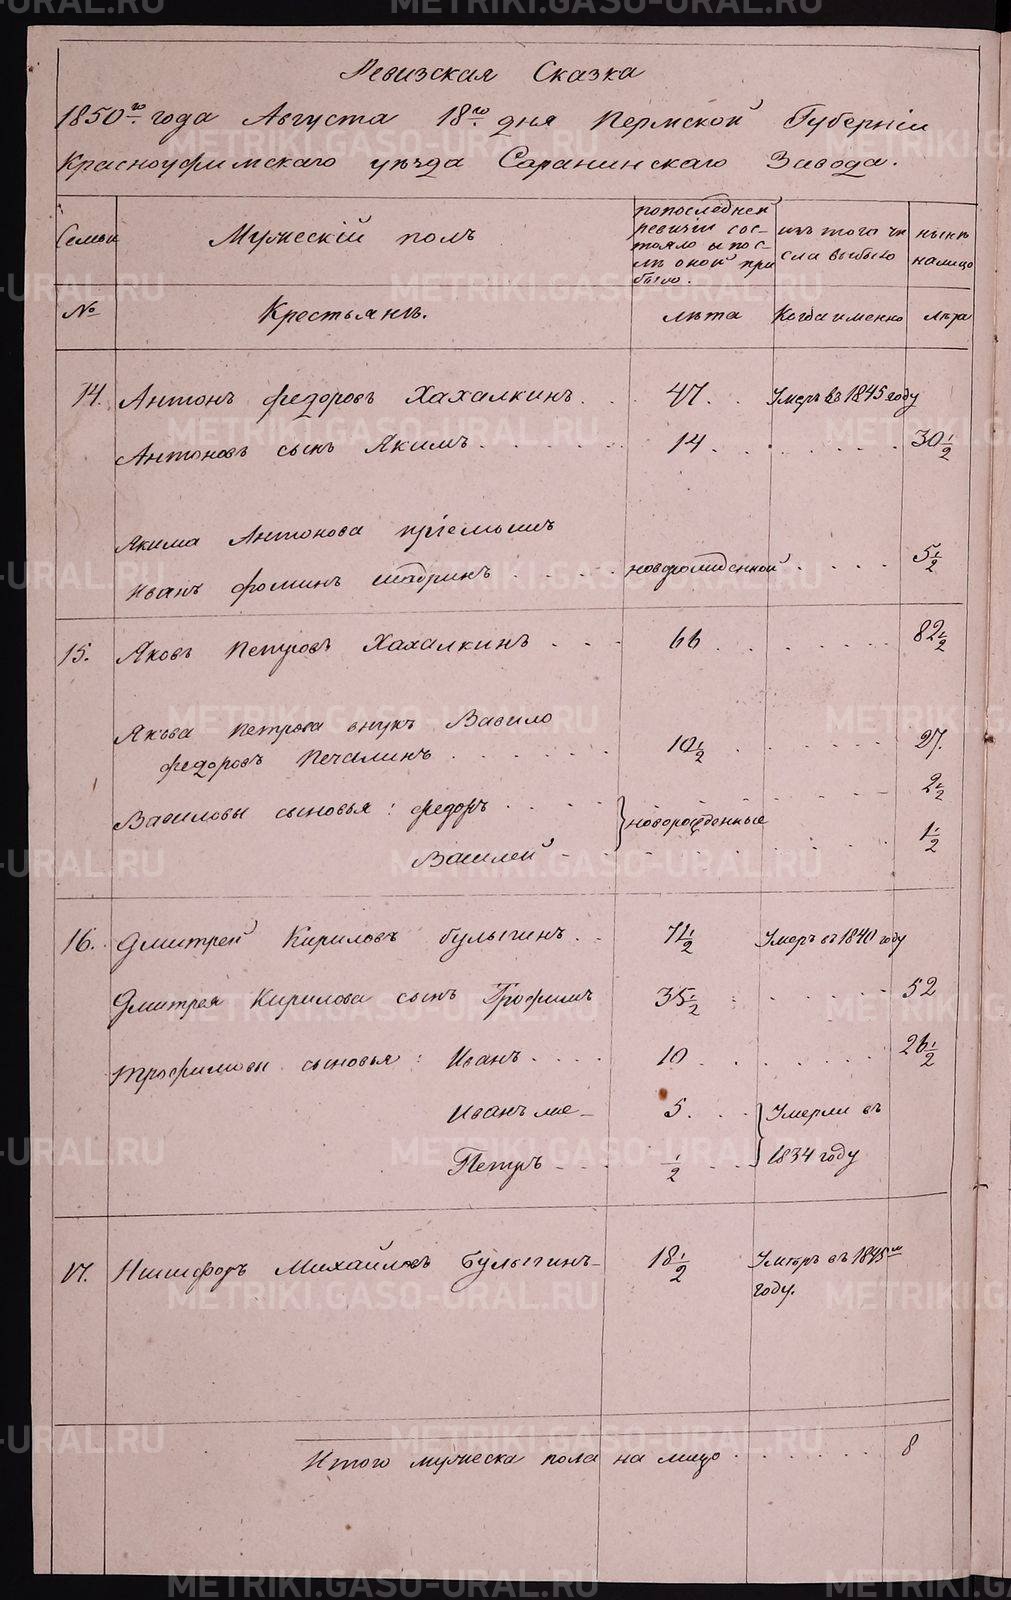 Ревизская Сказка
1850го года Августа 18го дня Пермской Губернiи
Красноуфимскаго уѣзда Саранинскаго Завода.
Семьи
Мужескiй полъ
по последней
ревизiи сос-
тояло и пос-
лѣ оной при
было.
изъ того чи
сла выбыло
нынѣ
налицо
№
Крестьянѣ.
лѣта
Когда именно
лѣта
14. Антонъ Федоровъ Хахалкинъ. 47. Умеръ въ 1845 году
Антоновъ сынъ Якимъ 14. 30 1/2
Якима Антонова прiемышъ
Иванъ Фоминъ Шадринъ новорожденной 5 1/2
15. Яковъ Петровъ Хахалкинъ 66 82 1/2
Якова Петрова внукъ Вавило
Федоровъ Печалинъ 10 1/2 27.
Вавиловы сыновья: Федоръ } новорожденные 2 1/2
Василей 1 1/2
16. Дмитрей Кириловъ Булыгинъ 71 1/2 Умеръ въ 1840 году
Дмитрея Кирилова сынъ Трофимъ 35 1/2 52
Трофимовы сыновья: Иванъ 10 26 1/2
Иванъ же 5. } Умерли въ
Петръ 1/2 1834 году
17. Никифоръ Михайловъ Булыгинъ 18 1/2 Умеръ въ 1845м
году.
Итого мужеска пола на лицо 8
METRIKI.GASO-URAL.RU